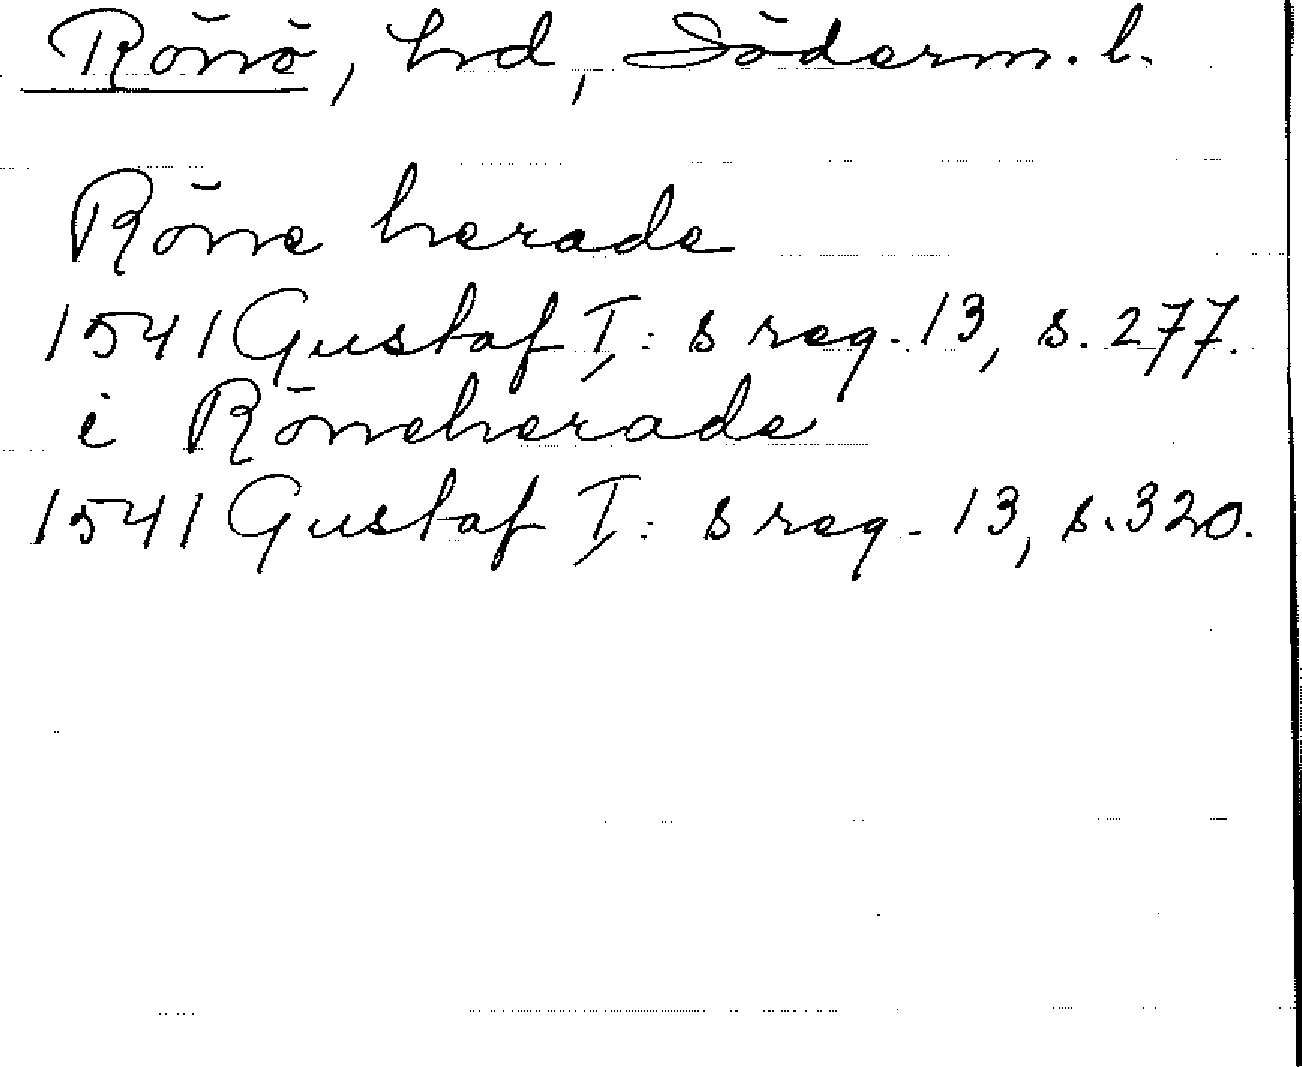 Rönö, hd, Söderm. l.
Röne herade
1541 Gustaf I: s reg. 13, s. 277.
i Röneherade
1541 Gustaf I: s reg. 13, s. 320.